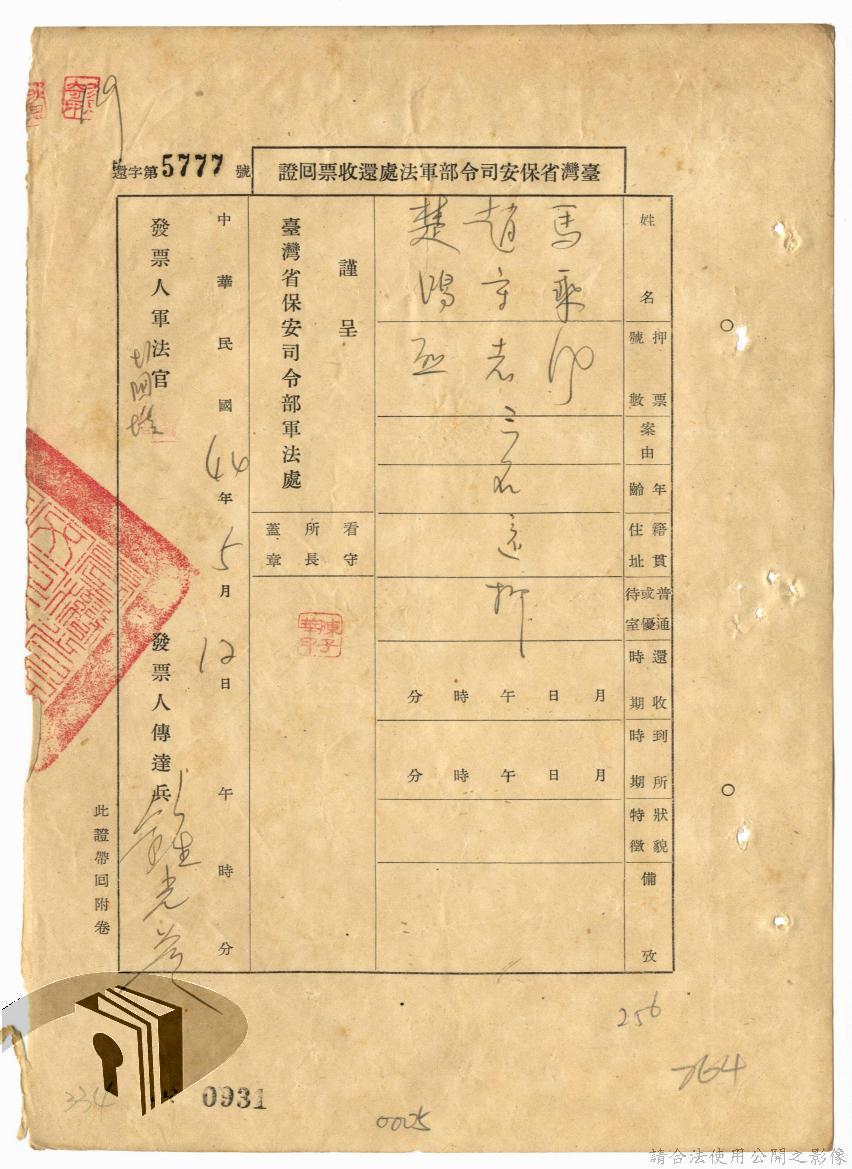 臺灣省保安司令部軍法處還收票回證
還字第5777號
姓名
馬乘
趙守志
楚鴻烈
押票號數
案由
年齡
三名還押
籍貫住址
普通或優待室
還收時期
月日午時分
到所時期
月日午時分
狀貌特徵
備攷
謹呈
臺灣省保安司令部軍法處
看守所長蓋章
陳子華印
中華民國44年5月12日午時分
發票人軍法官
發票人傳達兵
此證帶回附卷
256
764
334
0931
0025
請合法使用公開之影像